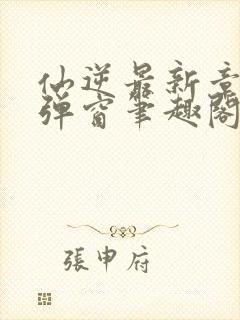 仙逆最新章
弹窗笔趣阁
張申府